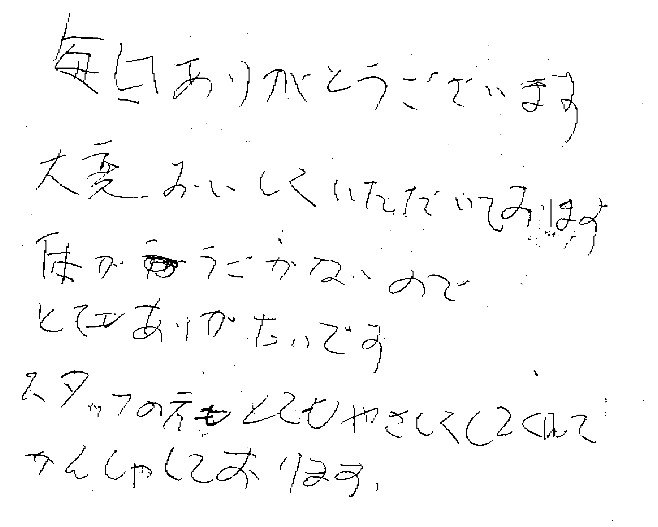 毎日ありがとうございます
大変おいしくいただいております
体がうごかないので
とてもありがたいです
スタッフの方もとてもやさしくしてくれて
かんしゃしております。